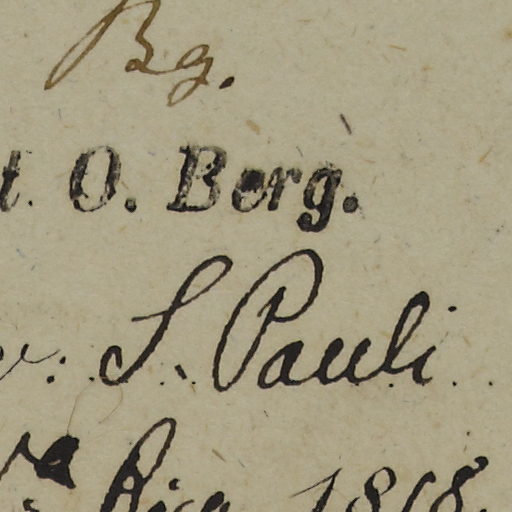 Bg.
t. O. Berg.
v: S. Pauli
Rig 1818.